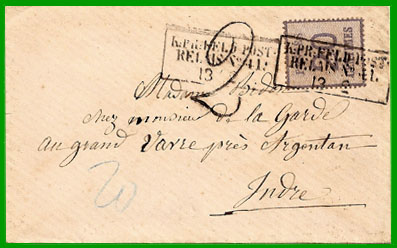 K:PR:FELD-POST-
RELAIS No 41.
13
K:PR:FELD-POST-
RELAIS No 41.
13
2
Madame
chez monsieur de la Garde
au grand Vavre près Argentan
Indre
20